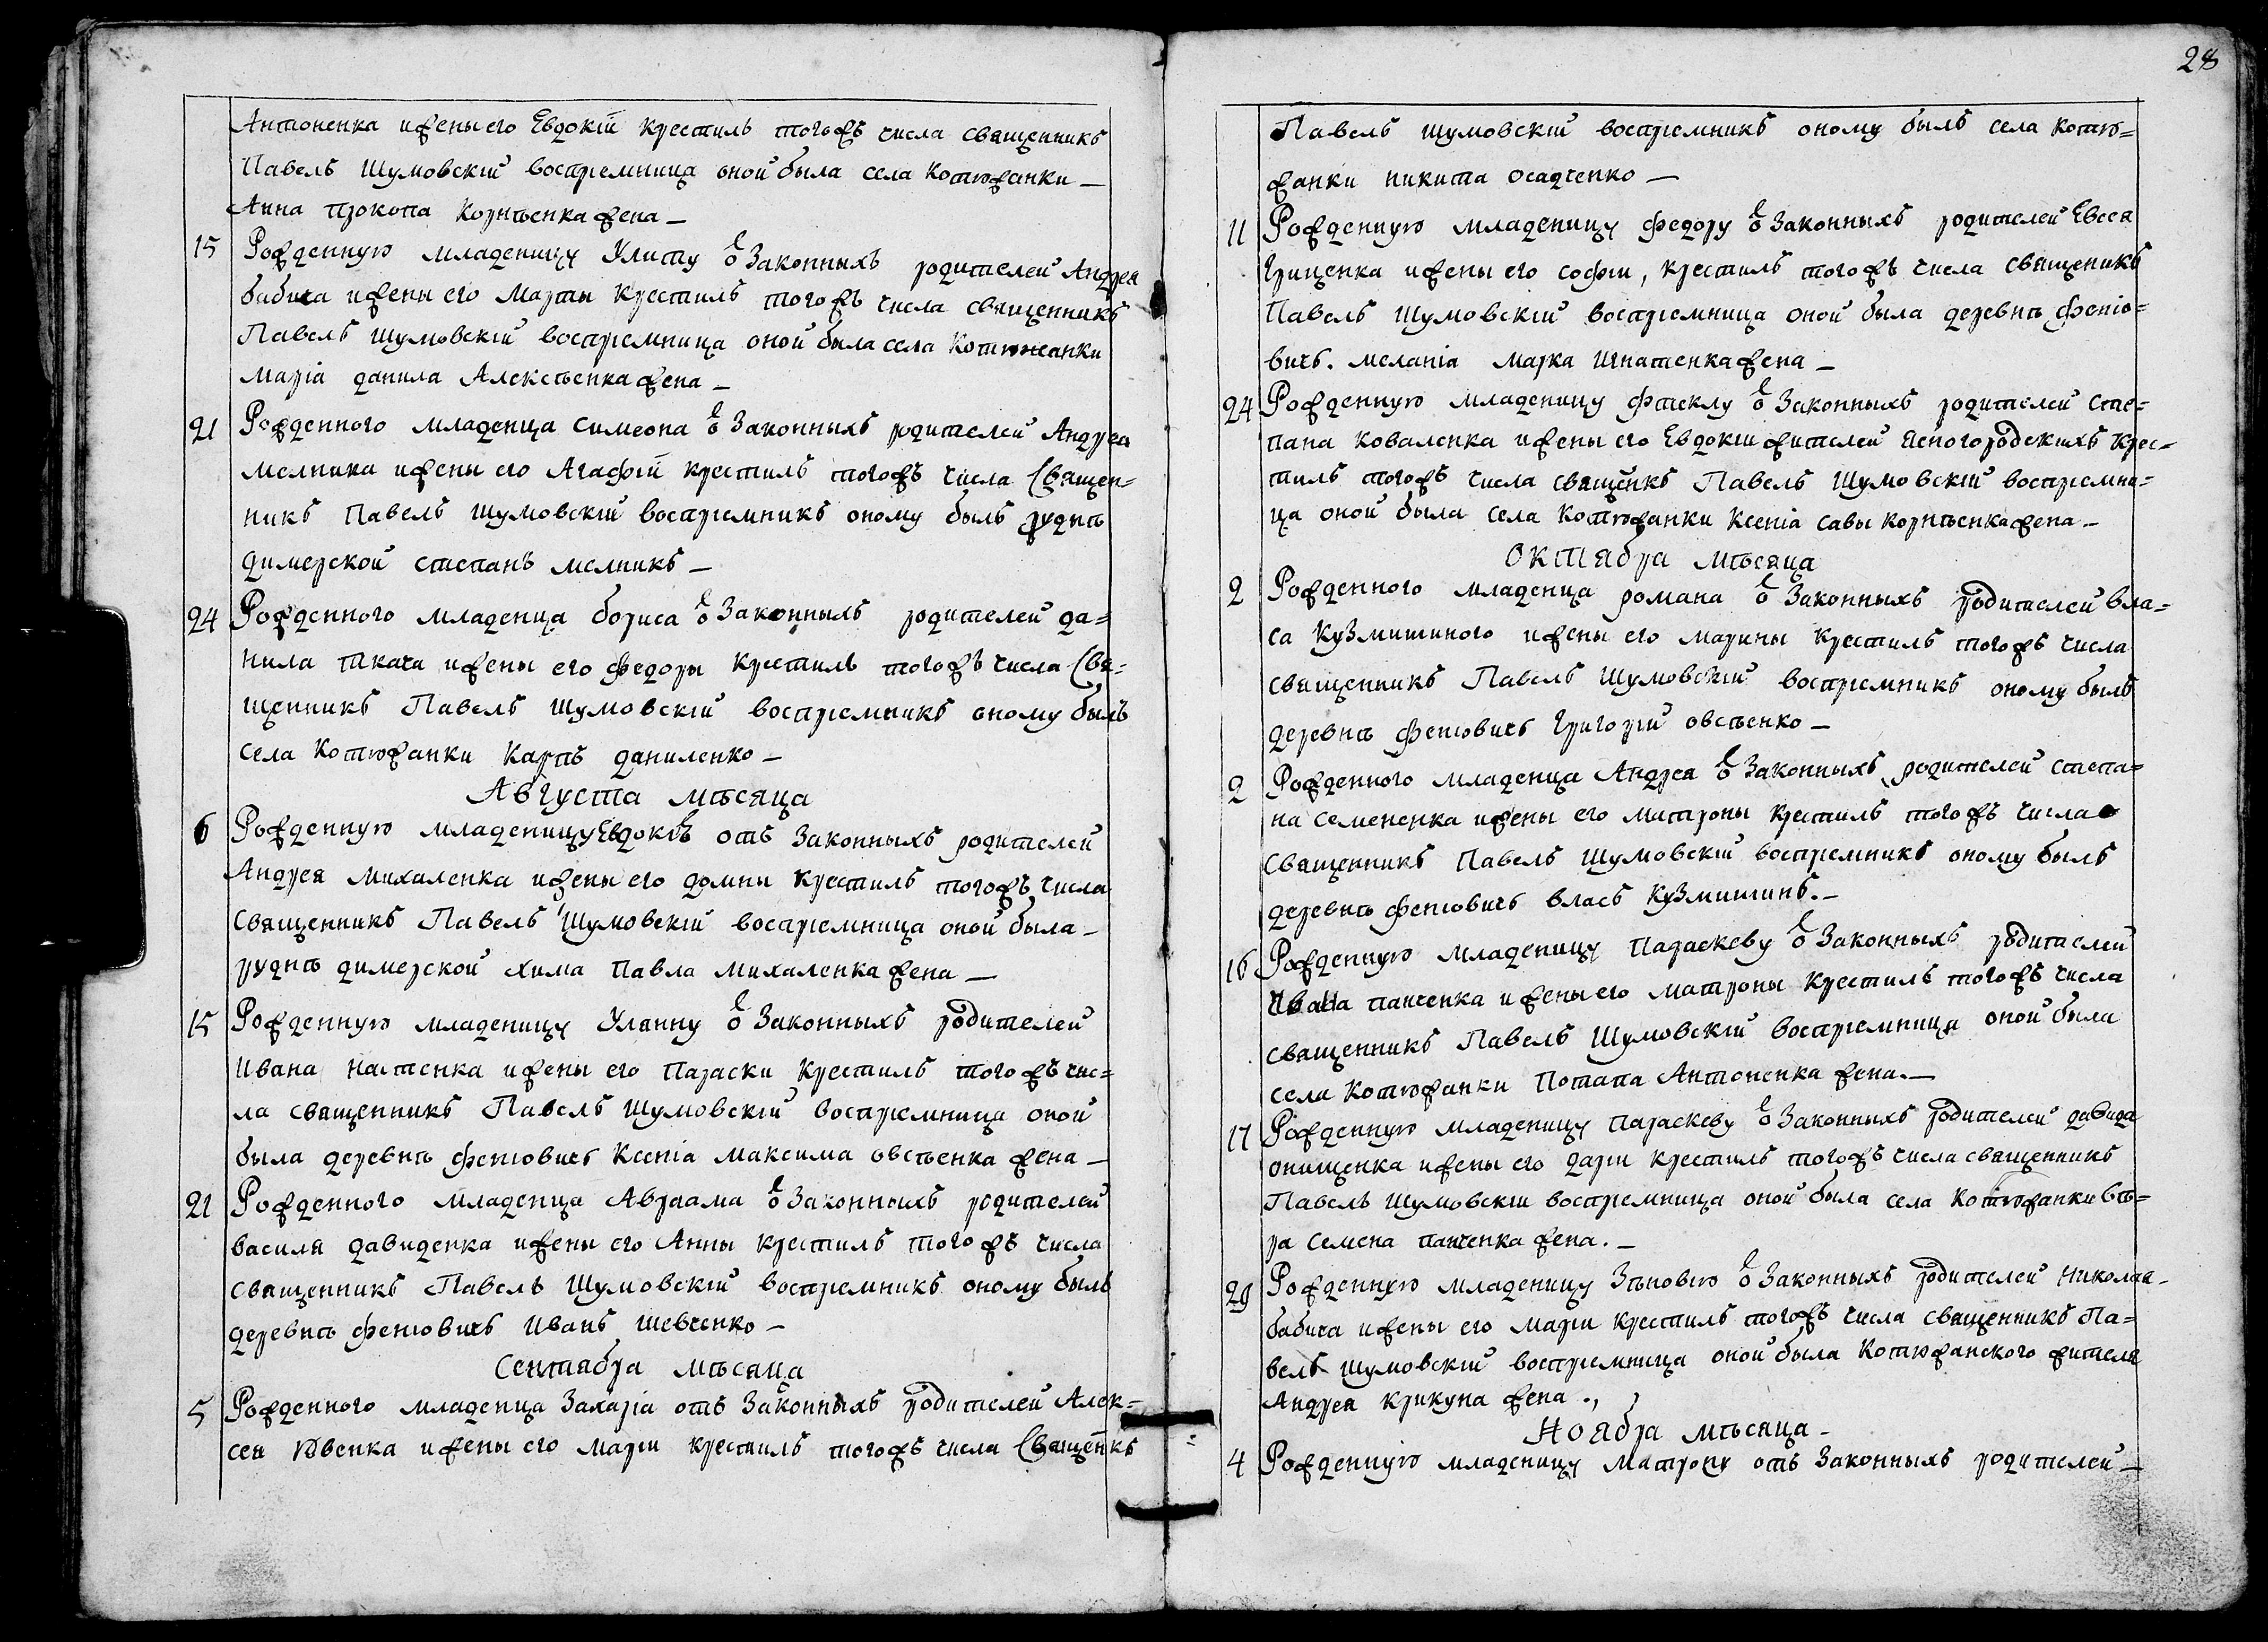 Антоненка и жены его Евдокіи крестилъ тогожъ числа священникъ
Павелъ Шумовскій воспріемница оной была села Котюжанки —
Анна Прокопа Корнѣенка жена —
15 Рожденную младеницу Улиту ѿ Законныхъ родителей Андрея
бабича и жены его Марты крестилъ тогожъ числа священникъ
Павелъ Шумовскій воспріемница оной была села Котюжанки
Маріа данила Алексѣенка жена —
21 Рожденного младенца Симеона ѿ Законныхъ родителей Андрея
мелника и жены его Агафіи крестилъ тогожъ числа Священ=
никъ Павелъ Шумовскій воспріемникъ оному былъ руднѣ
димерской степанъ мелникъ —
24 Рожденного младенца бориса ѿ Законныхъ родителей да=
нила ткача и жены его федоры крестилъ тогожъ числа Свя=
щенникъ Павелъ Шумовскій воспріемникъ оному былъ
села Котюжанки Карпъ даниленко —
Августа мѣсяца
6 Рожденную младеницу Евдокію отъ Законныхъ родителей
Андрея михаленка и жены его домны крестилъ тогожъ числа
священникъ Павелъ Шумовскій воспріемница оной была —
руднѣ димерской хима Павла михаленка жена —
15 Рожденную младеницу Уланну ѿ Законныхъ родителей
Ивана настенка и жены его Параски крестилъ тогожъ чис=
ла священникъ Павелъ Шумовскій воспріемница оной
была деревнѣ феніовичъ Ксеніа Максима овсѣенка жена —
21 Рожденного младенца Авраама ѿ Законныхъ родителей
василя давиденка и жены его Анны крестилъ тогожъ числа
священникъ Павелъ Шумовскій воспріемникъ оному былъ
деревнѣ феніовичъ Иванъ шевченко —
Сентабра мѣсяца
5 Рожденного младенца Захаріа отъ Законныхъ родителей Алек=
сея вдвенка и жены его маріи крестилъ тогожъ числа Священикъ
28
Павелъ шумовскій воспріемникъ оному былъ села котю=
жанки никита осадченко —
11 Рожденную младеницу федору ѿ Законныхъ родителей Евсея
Гриценка и жены его софіи, крестилъ тогожъ числа священикъ
Павелъ Шумовскій воспріемница оной была деревнѣ феніо=
вичъ. меланіа марка Игнатенка жена —
24 Рожденную младеницу фтеклу ѿ Законныхъ родителей сте=
пана коваленка и жены его Евдокіи жителей ясногородскихъ крес=
тилъ тогожъ числа священикъ Павелъ Шумовскій воспріемни=
ца оной была села Котюжанки Ксеніа савы корнѣенка жена —
Октября мѣсяца
2 Рожденного младенца романа ѿ Законныхъ родителей вла=
са Кузмишиного и жены его марины крестилъ тогожъ числа
священникъ Павелъ Шумовскій воспріемникъ оному былъ
деревнѣ феніовичъ Григорій овсѣенко —
2 Рожденного младенца Андрея ѿ Законныхъ родителей степа=
на семененка и жены его матроны крестилъ тогожъ числа
священникъ Павелъ Шумовскій воспріемникъ оному былъ
деревнѣ феніовичъ власъ Кузмишинъ. —
16 Рожденную младеницу Параскеву ѿ Законныхъ родителей
Ивана панченка и жены его матроны крестилъ тогожъ числа
священникъ Павелъ Шумовскій воспріемница оной была
села Котюжанки Потапа Антоненка жена. —
17 Рожденную младеницу параскеву ѿ Законныхъ родителей давида
онищенка и жены его даріи крестилъ тогожъ числа священникъ
Павелъ Шумовскій воспріемница оной была села Котюжанки вѣ=
ра семена панченка жена. —
29 Рожденную младеницу Зѣновію ѿ Законныхъ родителей Николая —
бабича и жены его маріи крестилъ тогожъ числа священникъ Па=
велъ Шумовскій воспріемница оной была Котюжанского жителя
Андрея крикуна жена.
Ноября мѣсяца —
4 Рожденную младеницу матрону отъ Законныхъ родителей —